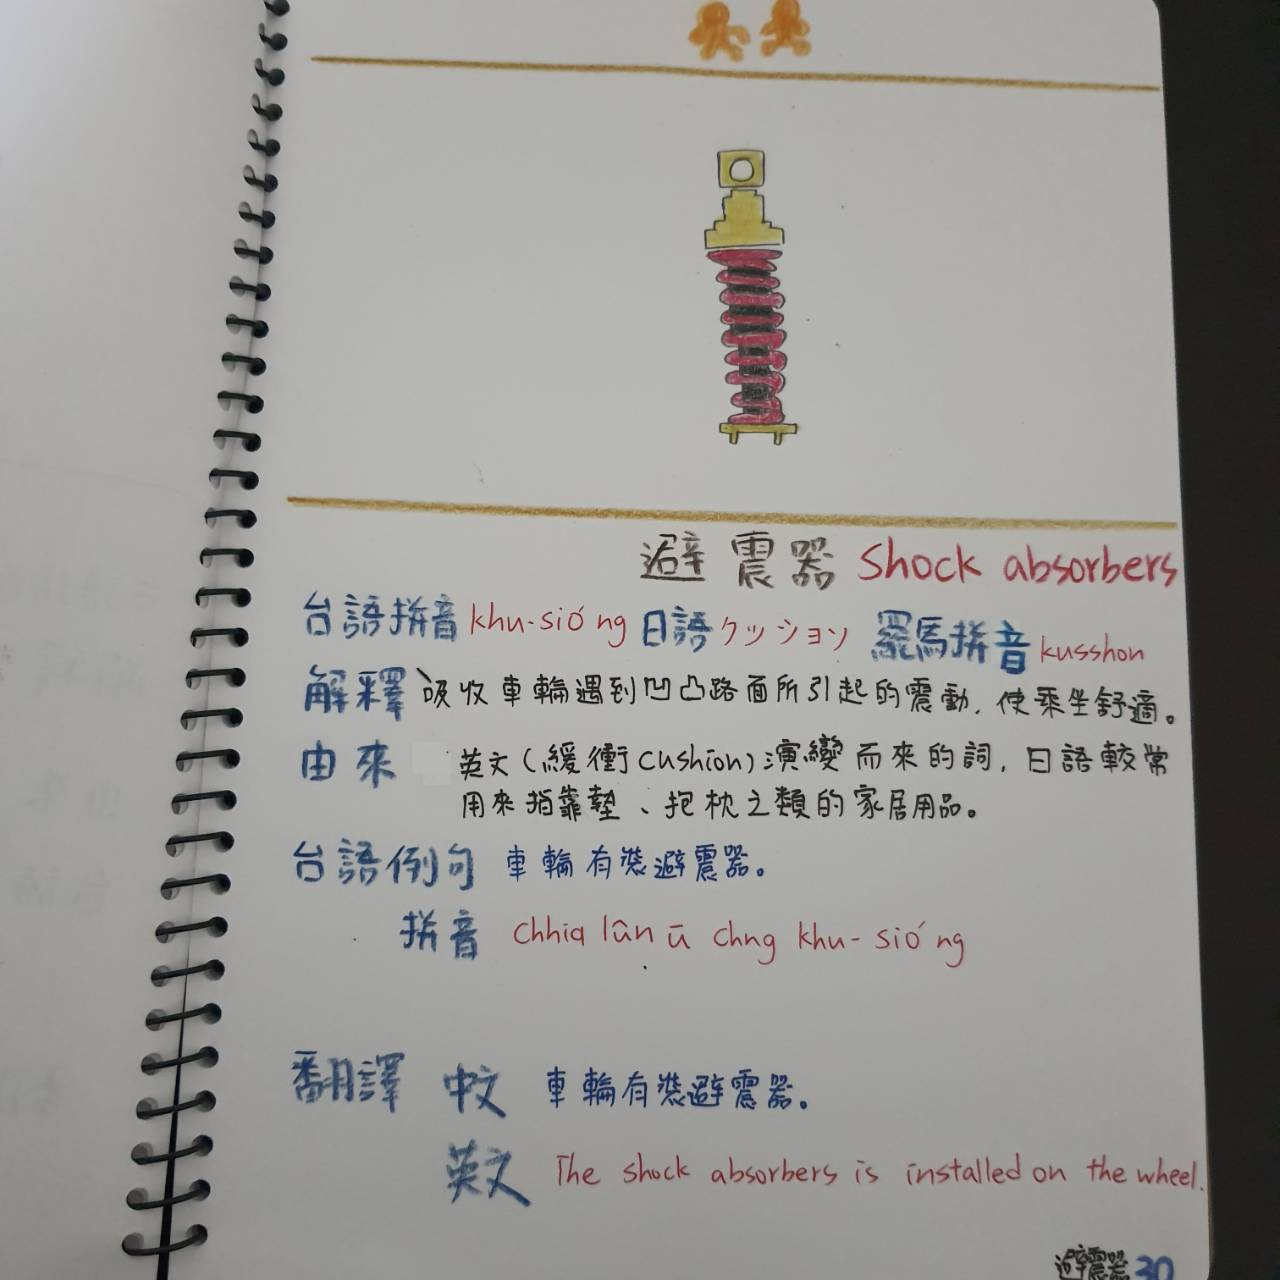 避震器 Shock absorbers
台語拼音 khu-sióng 日語 クッション 羅馬拼音 kusshon
解釋 吸收車輪遇到凹凸路面所引起的震動,使乘坐舒適。
由來 英文(緩衝cushion)演變而來的詞,日語較常
用來指靠墊、抱枕之類的家居用品。
台語例句 車輪有裝避震器。
拼音 chhia lûn ū chng khu-sióng
翻譯 中文 車輪有裝避震器。
英文 The shock absorbers is installed on the wheel.
避震器 30